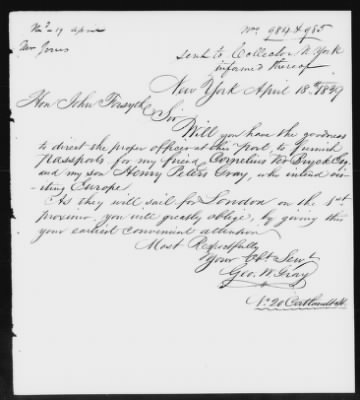 Nos 984 & 985
sent to Collector N. York
informed thereof
New York April 18th 1839
Hon John Forsyth
Sir
Will you have the goodness
to direct the proper officer at this Port, to furnish
passports for my friend Cornelius Ten Esq
and my son Henry Peters Gray, who intend visi-
-ting Europe.
As they will sail for London on the 1st
proximo, you will greatly oblige, by giving this
your earliest convenient attention
Most Respectfully
Your Obt. Servt
Geo. W. Gray
No 20 Cortlandt St.